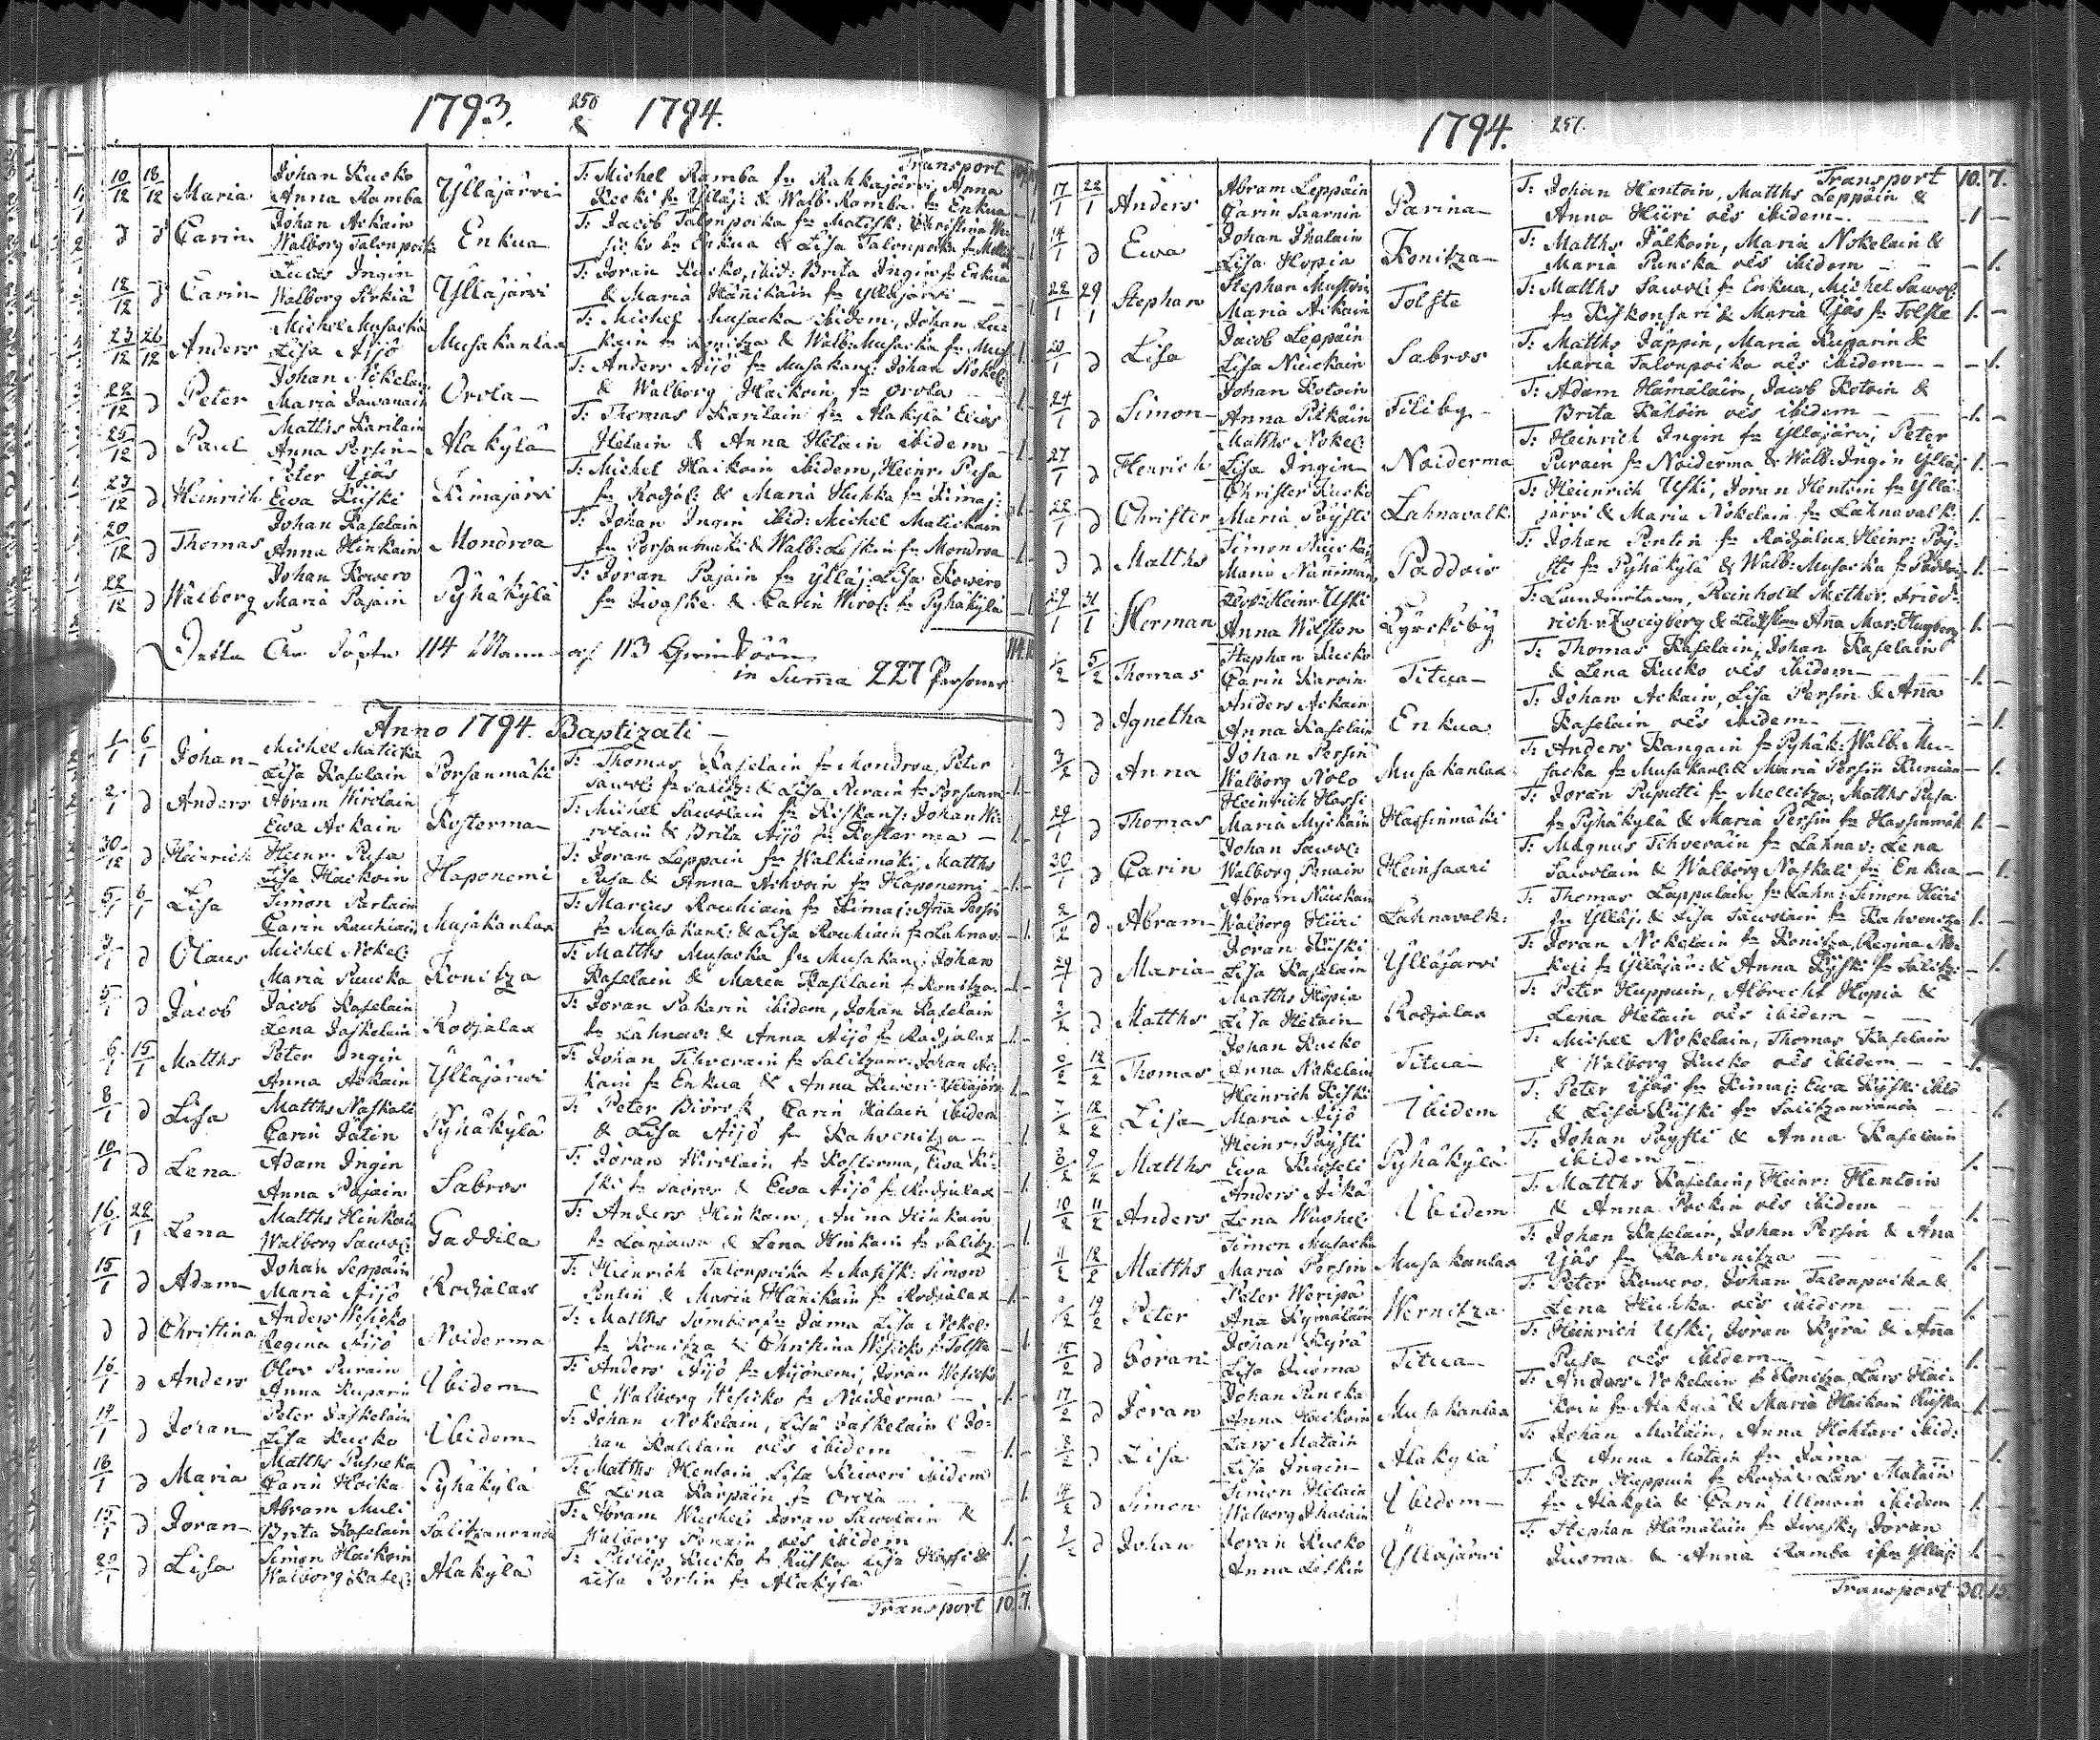 1793. 250 & 1794.
Transport
10/12 18/12 Maria Johan Kucko Anna Ramba Ylläjärvi T: Michel Ramba fr Rahkajärvi, Anna
Kecki fr Ylläj: & Walb. Ramba fr Enkua
d d Carin Johan Ackain Walborg Talonpoik: Enkua T: Jacob Talonpoika fr Matisk: Christina
fr Enkua & Lisa Talonpoika
18/12 d Carin Lucas Ingin Walborg Sirkiä Ylläjärvi T: Joran Kucko, ibid: Brita Ingin fr Enkua
& Maria Hänikäin fr Ylläjärvi
23/12 26/12 Anders Michel Musacka Lisa Aijö Musakanlax T: Michel Musacka ibidem, Johan
kain fr Konitza & Walb: Musacka fr Mus
22/12 d Peter Johan Nokelain Maria Jawanain Orola T: Anders Aijö fr Musakanl: Johan Nokel:
& Walborg Haikoin fr Orola
25/12 d Paul Matths Karilain Anna Persin Alakylä T: Thomas Karilain fr Alakylä Elias
Hetain & Anna Hetain ibidem
23/12 d Heinrich Peter Yjäs Ewa Kiiski Kimajärvi T: Michel Haikoin ibidem, Heinr: Pusa
fr Rodjal: & Maria Huhka fr Kimaj:
20/12 d Thomas Johan Kaselain Anna Hinkain Mondroa T: Johan Ingin ibid: Michel Matickain
fr Porsanmäki & Walb: Leskin fr Mondroa
22/12 d Walborg Johan Kowero Maria Pajain Pyhäkylä T: Joran Pajain fr Ylläj: Lisa Kowero
fr Iwaska & Carin Wirol: fr Pyhäkylä
Detta År döpta 114 Mann och 113 Qwinköön
in Summa 227 Personer
Anno 1794 Baptizati
1/1 6/1 Johan Michel Maticka Lisa Kaselain Porsanmäki T: Thomas Kaselain fr Mondroa, Peter
Sawol: fr Salitz: & Lisa Rerain fr Porsanm
2/1 d Anders Abram Wirolain Ewa Ackain Kosterma T: Michel Sawolain fr Riskans: Johan Wi-
rolain & Brita Aijö fr Kosterma
30/12 d Heinrich Heinr: Pusa Lisa Haickoin Haponemi T: Joran Leppain fr Walkiamäki, Matths
Pusa & Anna Ahvoin fr Haponemi
5/1 6/1 Lisa Simon Partain Carin Rauhiain Musakanlax T: Marcus Rouhiain fr Kimaj: Anna Persin
fr Musakanl: & Lisa Rouhiain fr Lahnav:
3/1 d Olaus Michel Nokel: Maria Puncka Konitza T: Matths Musacka fr Musakanl: Johan
Kaselain & Maria Kaselain fr Konitza
5/1 d Jacob Jacob Kaselain Lena Jaskelain Rodjalax T: Joran Pakarin ibidem, Johan Kaselain
fr Lahnav: & Anna Aijö fr Rodjalax
6/1 15/1 Matths Peter Ingin Anna Ackain Ylläjärvi T: Johan Tihverain fr Salitzanr: Johan Ac-
kain fr Enkua & Anna Kiweri Ylläjärv
8/1 d Lisa Matths Naskali Carin Jätin Pyhäkylä T: Peter Björck, Carin Halain ibidem
& Lisa Aijö fr Kahvenitza
10/1 d Lena Adam Ingin Anna Pajain Sabros T: Joran Wirolain fr Kosterma, Ewa Ki-
ski fr Sabros & Ewa Aijö fr Rodjalax
16/1 22/1 Lena Matths Hinkain Walborg Sawol: Gaddila T: Anders Hinkain, Anna Hinkain
fr Larjawa & Lena Hinkain fr Salitz:
15/1 d Adam Johan Seppäin Maria Aijö Rodjalax T: Hienrich Talonpoika fr Matisk: Simon
Pentin & Maria Hänikäin fr Rodjalax
d d Christina Anders Wesicko Regina Aijö Noiderma T: Matths Somber fr Jama Lisa Nokel:
fr Konitza & Christina Wesicko fr Tolsta
16/1 d Anders Olov Purain Anna Kuparin Ibidem T: Anders Aijö fr Aijönemi, Joran Wesicko
& Walborg Wesicko fr Noiderma
14/1 d Joran Peter Jaskelain Lisa Kucko Ibidem T: Johan Nokelain, Lisa Jaskelain & Jo-
han Kaselain oës ibidem
18/1 d Maria Matths Pusnecka Carin Hocka Pyhäkylä T: Matths Hentain Lisa Kiweri ibidem
& Lena Karpain fr Orola
15/1 d Joran Abram Muli Brita Kaselain Salitzanranda T: Abram Wuohel: Joran Sawolain &
Walborg Penain oës ibidem
20/1 d Lisa Simon Haikoin Walborg Kasel: Alakylä T: Philip Kucko fr Riiska Lisa Hassi &
Lisa Persin fr Alakylä
Transport 10. 7.
1794. 251.
Transport 10. 7.
17/1 22/1 Anders Abram Leppäin Carin Saarnin Parina T: Johan Hentoin, Matths Leppäin &
Anna Hiiri oës ibidem
14/1 d Ewa Johan Ihalain Lisa Hopia Konitza T: Matths Jälkoin, Maria Nokelain &
Maria Puncka oës ibidem
22/1 29/1 Stephan Stephan Muston Maria Ackain Tolsta T: Matths Sawol: fr Enkua, Michel Sawol:
fr Riskonsari & Maria Yjäs fr Tolsta
20/1 d Lisa Jacob Leppäin Lisa Niuckain Sabros T: Matths Jäppin, Maria Kuparin &
Maria Talonpoika oës ibidem
24/1 d Simon Johan Kotoin Anna Pitkäin Filiby T: Adam Hämäläin, Jacob Kotoin &
Brita Kahöin oës ibidem
27/1 d Henrich Matths Nokel: Lisa Ingin Noiderma T: Heinrich Ingin fr Ylläjärvi, Peter
Purain fr Noiderma & Walb: Ingin Ylläj
22/1 d Christer Christer Kucko Maria Pöysti Lahnavalk: T: Heinrich Uski, Joran Hentoin fr Yllä-
järvi & Maria Nokelain fr Lahnavalk:
d d Matths Simon Niuckain Maria Näniman Paddois T: Johan Pentin fr Rodjalax, Heinr: Pöy-
sti fr Pyhäkylä & Walb: Musacka fr Paddois
29/1 31/1 Herman Heinr: Uski Anna Wilston Kyrckoby T: Reinhold Mether, Fried-
rich v. Zweigberg & Anna Mar: Hugberg
1/2 5/2 Thomas Stephan Kucko Carin Karvin Titua T: Thomas Kaselain, Johan Kaselain
& Lena Kucko oës ibidem
d d Agnetha Anders Ackain Anna Kaselain Enkua T: Johan Ackain, Lisa Persin & Anna
Kaselain oës ibidem
3/2 d Anna Johan Persin Walborg Nolo Musakanlax T: Anders Kangain fr Pyhäk: Walb: Mu-
sacka fr Musakanl: & Maria Persin
29/1 d Thomas Heinrich Hassi Maria Myickäin Hassinmäki T: Joran Puputti fr Mellitza, Matths Pusa
fr Pyhäkylä & Maria Persin fr Hassinmäk
30/1 d Carin Johan Sawol: Walborg Penain Heinsaari T: Magnus Tihveräin fr Lahnav: Lena
Sawolain & Walborg Naskali fr Enkua
2/2 d Abram Abram Niuckain Walborg Hiiri Lahnavalk: T: Thomas Lappalain fr Lahn: Simon Hiiri
fr Ylläj: & Lisa Sawolain fr Kahvenitza
29/1 d Maria Joran Kiiski Lisa Kaselain Ylläjärvi T: Joran Nokelain fr Konitza, Regina
fr Ylläjär: & Anna Kiiski fr Salitz:
2/2 d Matths Matths Hopia Lisa Hetain Rodjalax T: Peter Huppuin, Albrecht Hopia &
Lena Hetain oës ibidem
6/2 12/2 Thomas Johan Kucko Anna Nokelain Titua T: Michel Nokelain, Thomas Kaselain
& Walborg Kucko oës ibidem
7/2 12/2 Lisa Heinrich Kiiski Maria Aijö Ibidem T: Peter Yjäs fr Kimaj: Ewa Kiiski ibid
& Lisa Kiiski fr Salitzanranda
8/2 9/2 Matths Heinr: Pöysti Ewa Kucoeli Pyhäkylä T: Johan Pöysti & Anna Kaselain
ibidem
10/2 11/2 Anders Anders Aikä Lena Wuohel: Ibidem T: Matths Kaselain, Heinr: Hentoin
& Anna Pockin oës ibidem
11/2 12/2 Matths Simon Musacka Maria Persin Musakanlax T: Johan Kaselain, Johan Persin & Ana
Yjäs fr Kahvenitza
9/2 12/2 Peter Peter Weripä Ana Kymäläin Wernitza T: Peter Kowero, Johan Talonpoika &
Lena Huhka oës ibidem
15/2 d Göran Johan Kyrä Lisa Jusoma Titua T: Heinrich Uski, Joran Kyrä & Anna
Pusa oës ibidem
17/2 d Joran Johan Puncka Anna Haikoin Musakanlax T: Anders Nokelain fr Konitza, Lars Hai-
koin fr Alakylä & Maria Haikoin Riiska
8/2 d Lisa Lars Matain Lisa Ingin Alakylä T: Johan Matain, Anna Kohtari ibid:
& Anna Matain fr Jama
14/2 d Simon Simon Hetain Walborg Ihalain Ibidem T: Peter Huppuin fr Rodjal: Lars Matain
fr Alakylä & Carin Ulmain ibidem
9/2 d Johan Joran Kucko Anna Leskin Ylläjärvi T: Stephan Hämäläin fr Iwaska, Joran
Jusoma & Anna Ramba fr Ylläj:
Transport 30. 15.